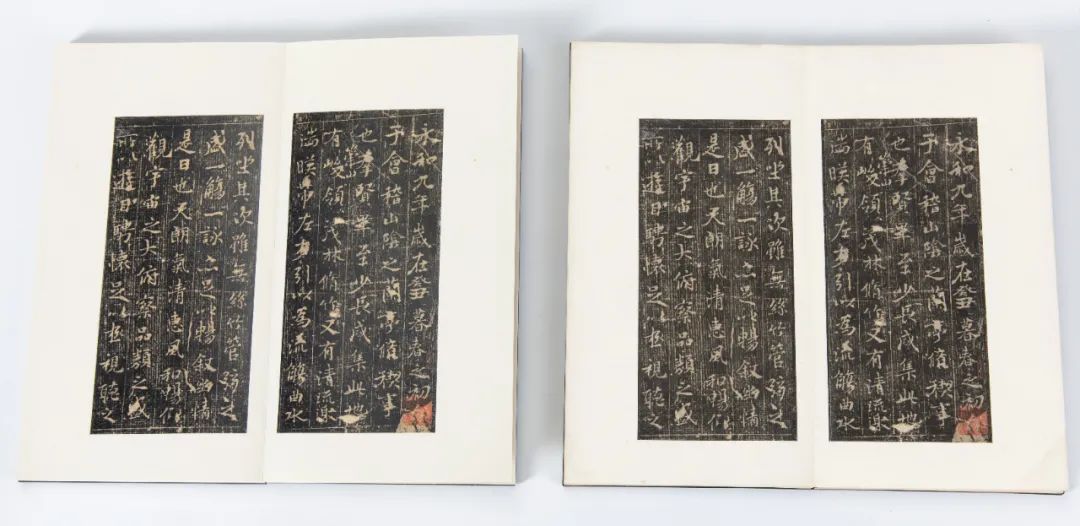 永和九年歲在癸丑暮春之初
于會稽山陰之蘭亭脩禊事
也羣賢畢至少長咸集此
有崇山峻領茂林脩竹又有清流激
湍暎帶左右引以為流觴曲水
列坐其次雖無絲竹管弦之
盛一觴一詠亦足以暢敘幽情
是日也天朗氣清惠風和暢仰
觀宇宙之大俯察品類之盛
所以遊目騁懷足以極視聽之
永和九年歲在癸丑暮春之初
于會稽山陰之蘭亭脩禊事
也羣賢畢至少長咸集此地
有崇山峻領茂林脩竹又有清流激
湍暎帶左右引以為流觴曲水
列坐其次雖無絲竹管弦之
盛一觴一詠亦足以暢敘幽情
是日也天朗氣清惠風和暢仰
觀宇宙之大俯察品類之盛
所以遊目騁懷足以極視聽之